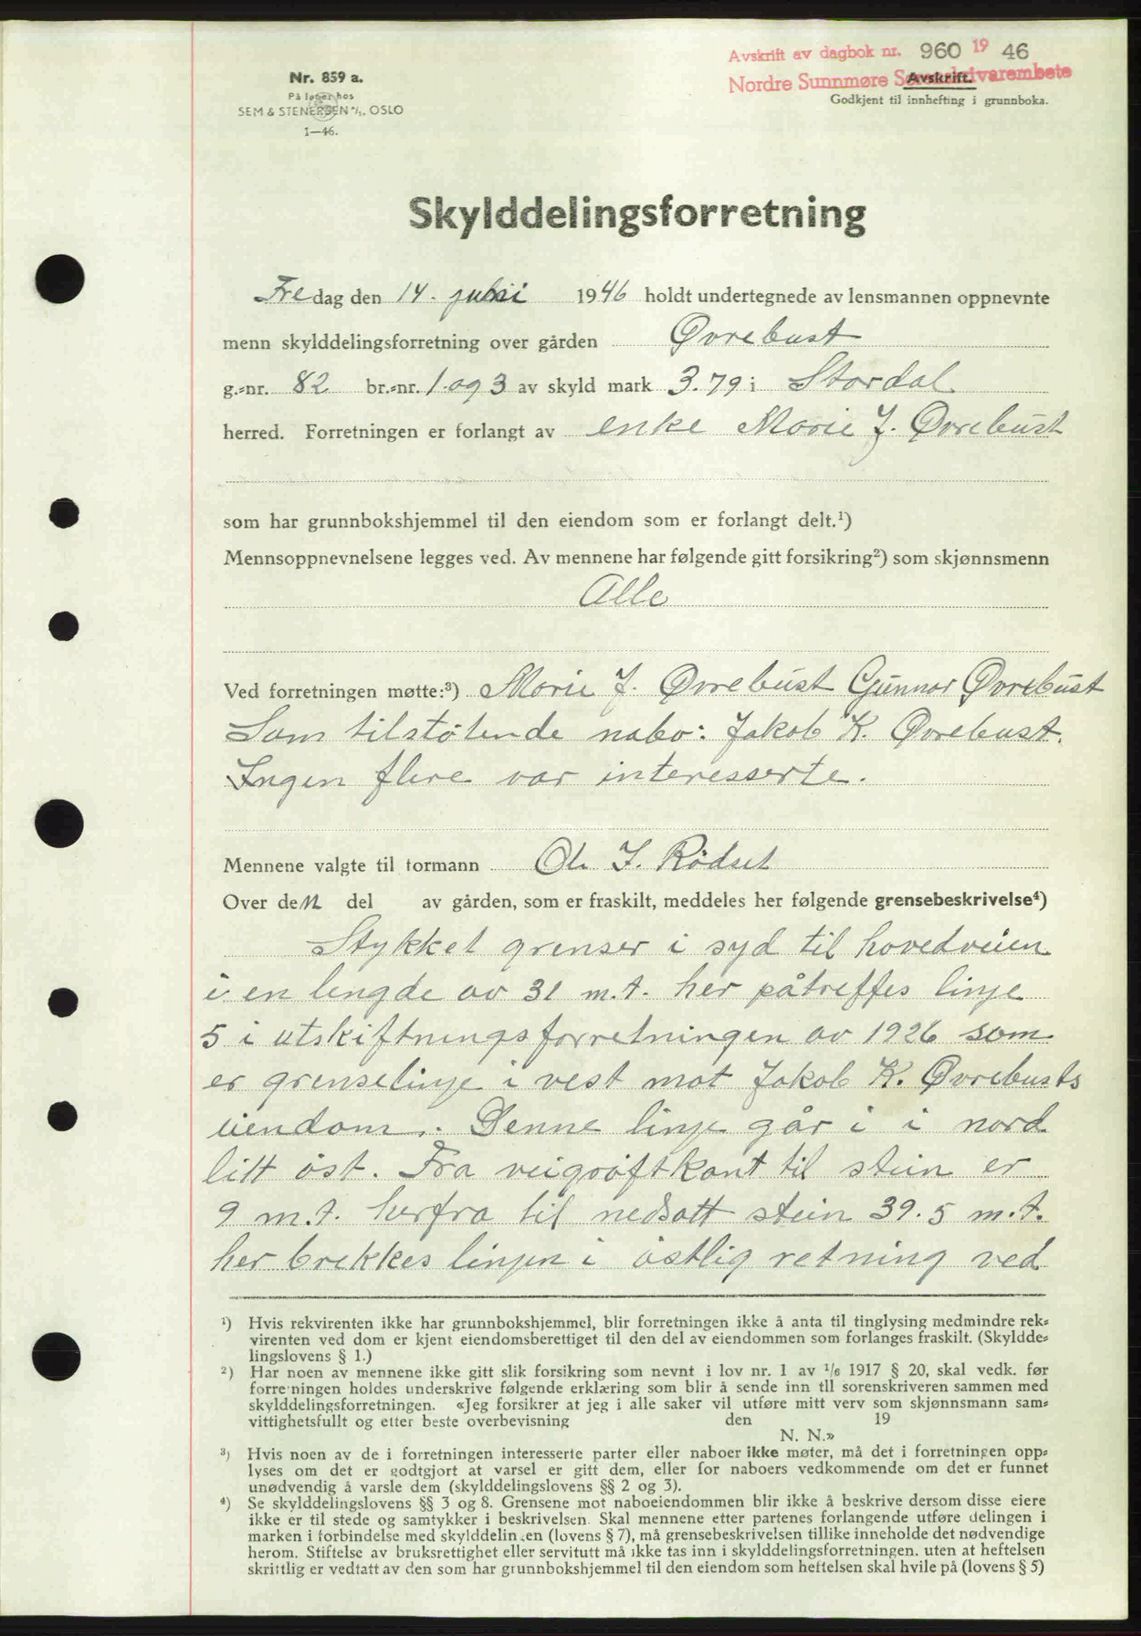 Avskrift av dagbok nr. 960 19 46
Nordre Sunnmøre Sorenskrivarembete
Nr. 859 a.
På lager hos
SEM & STENERSEN A/S, OSLO
1—46.
Avskrift.
Godkjent til innhefting i grunnboka.
Skylddelingsforretning
Fredag den 14. juni 1946 holdt undertegnede av lensmannen oppnevnte
menn skylddelingsforretning over gården Øvrebust
g.-nr. 82 br.-nr. 1 og 3 av skyld mark 3.79 i Stordal
herred. Forretningen er forlangt av enke Marie J. Øvrebust
som har grunnbokshjemmel til den eiendom som er forlangt delt.¹)
Mennsoppnevnelsene legges ved. Av mennene har følgende gitt forsikring²) som skjønnsmenn
Alle
Ved forretningen møtte:³) Marie J. Øvrebust Gunnar Øvrebust
Som tilstøtende nabo: Jakob K. Øvrebust.
Ingen flere var interesserte.
Mennene valgte til formann Ole I. Rödset
Over den del av gården, som er fraskilt, meddeles her følgende grensebeskrivelse⁴)
Stykket grenser i syd til hovedveien
i en lengde av 31 m.t. her påtreffes linje
5 i utskiftningsforretningen av 1926 som
er grenselinje i vest mot Jakob K. Øvrebusts
eiendom. Denne linje går i i nord
litt öst. Fra veigröftkant til stein er
9 m.t. herfra til nedsatt stein 39.5 m.t.
her brekkes linjen i östlig retning ved
¹) Hvis rekvirenten ikke har grunnbokshjemmel, blir forretningen ikke å anta til tinglysing medmindre rek-
virenten ved dom er kjent eiendomsberettiget til den del av eiendommen som forlanges fraskilt. (Skyldde-
lingslovens § 1.)
²) Har noen av mennene ikke gitt slik forsikring som nevnt i lov nr. 1 av 1/6 1917 § 20, skal vedk. før
forretningen holdes underskrive følgende erklæring som blir å sende inn til sorenskriveren sammen med
skylddelingsforretningen. «Jeg forsikrer at jeg i alle saker vil utføre mitt verv som skjønnsmann sam-
vittighetsfullt og etter beste overbevisning den 19
N. N.»
³) Hvis noen av de i forretningen interesserte parter eller naboer ikke møter, må det i forretningen opp-
lyses om det er godtgjort at varsel er gitt dem, eller for naboers vedkommende om det er funnet
unødvendig å varsle dem (skylddelingslovens §§ 2 og 3).
⁴) Se skylddelingslovens §§ 3 og 8. Grensene mot naboeiendommen blir ikke å beskrive dersom disse eiere
ikke er til stede og samtykker i beskrivelsen. Skal mennene etter partenes forlangende utføre delingen i
marken i forbindelse med skylddelingen (lovens § 7), må grensebeskrivelsen tillike inneholde det nødvendige
herom. Stiftelse av bruksrettighet eller servitutt må ikke tas inn i skylddelingsforretningen, uten at heftelsen
skriftlig er vedtatt av den som har grunnbokshjemmel til den eiendom som heftelsen skal hvile på (lovens § 5)